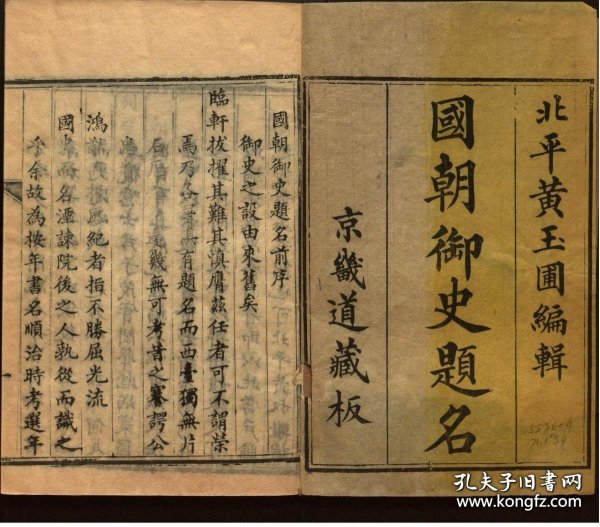 北平黄玉圃編輯
國朝御史題名
京畿道藏板
國朝御史題名前序
御史之設由來舊矣
臨軒拔擢其難其慎膺茲任者可不謂榮
焉乃各有題名而西臺獨無片
幾無可考昔之謇諤公
鴻絶者指不勝屈光流
國史而名湮諫院後之人孰從而識之
乎余故為按年書名順治時考選年
553609
孔夫子旧书网
www.kongfz.com